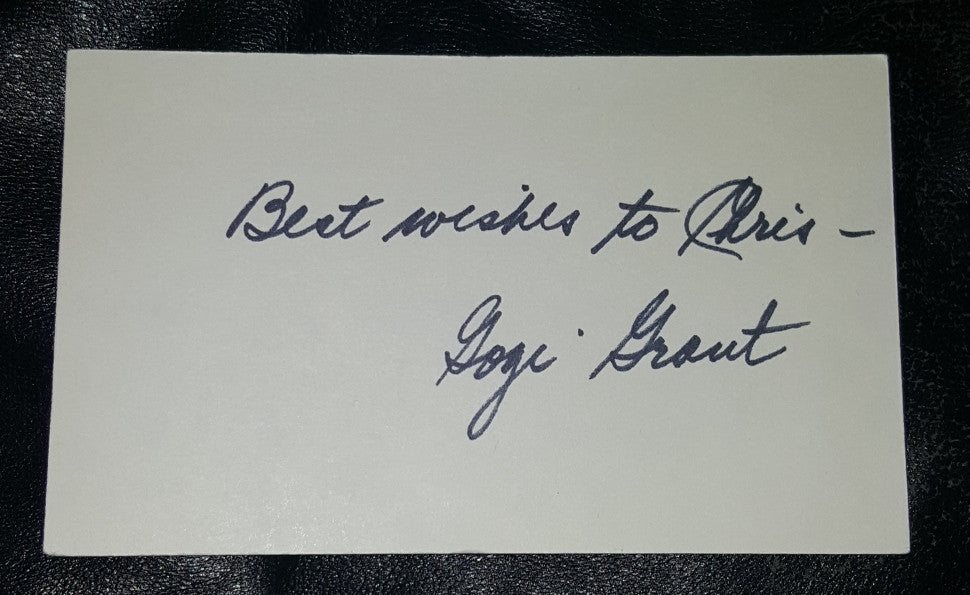 Best wishes to Chris –
Gogi Grant